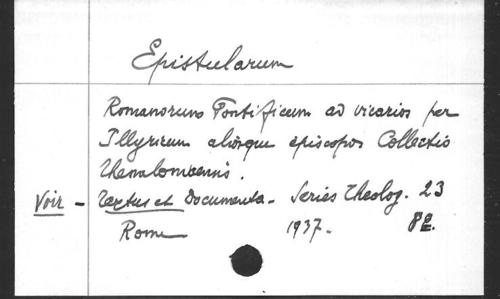 Epistularum
Romanorum Pontificum ad vicarios per
Illyricum aliosque episcopos Collectio
Thessalonicensis.
Voir - Textus et Documenta - Series Theolog. 23
Rome 1937 - 8º